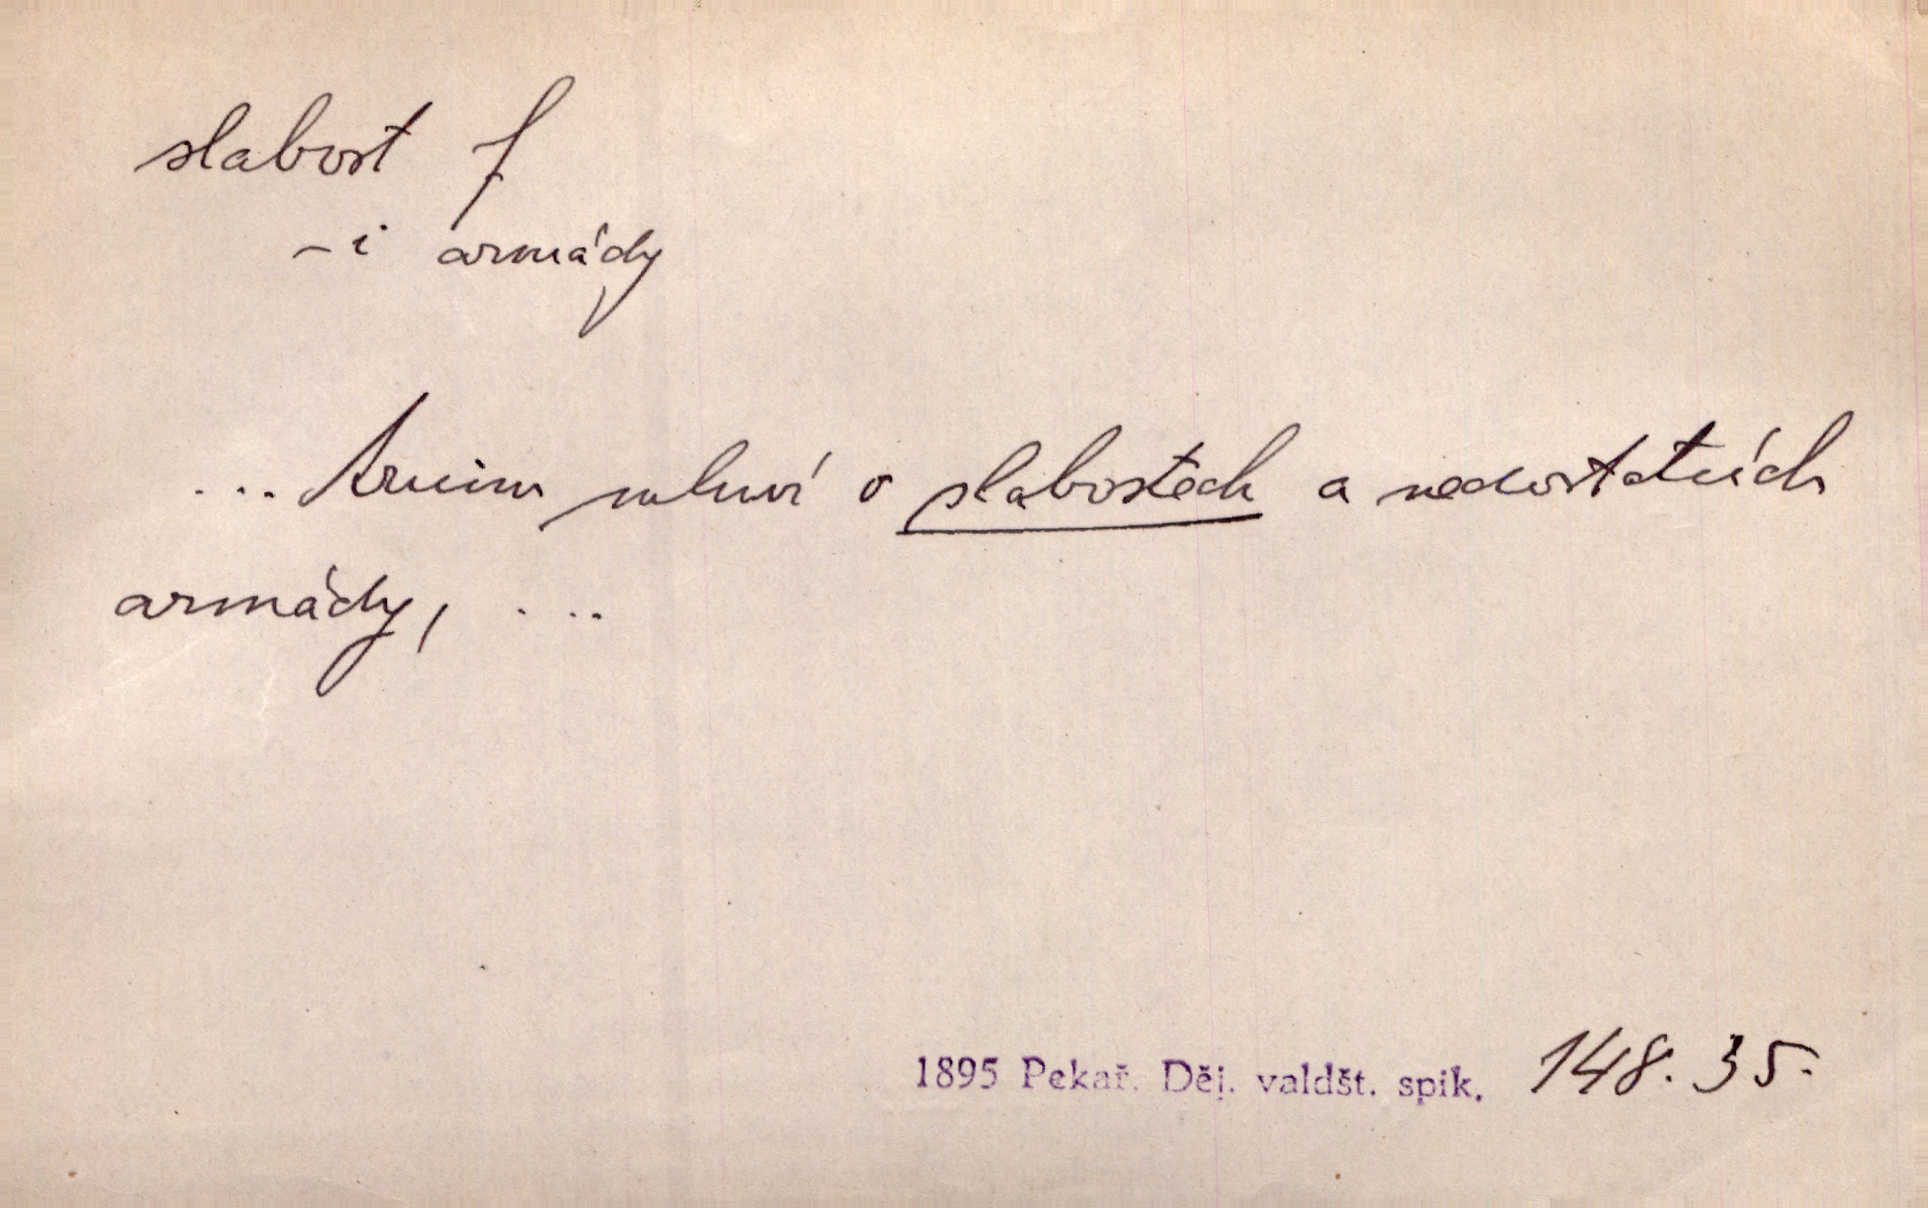 slabost f
-i armády
... Arnim mluví o slabostech a nedostatcích
armády, ...
1895 Pekař. Děj. valdšt. spik. 148.35.